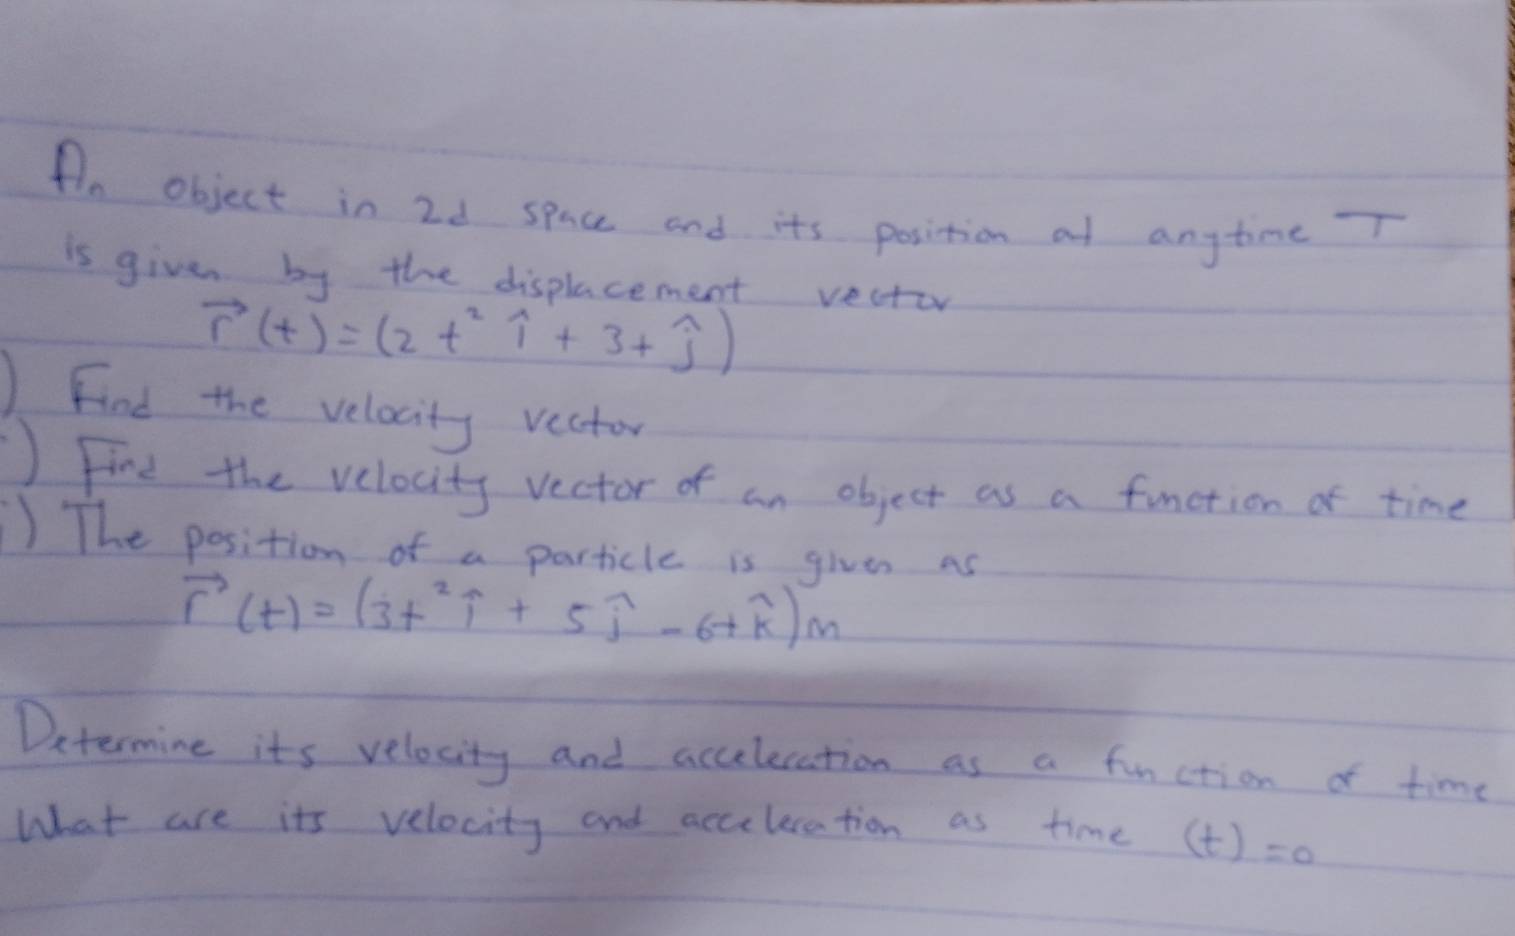 An object in 2d space and its position at anytime T
is given by the displacement vector
r⃗ (t) = (2 t² î + 3t ĵ)
) Find the velocity vector
) Find the velocity vector of an object as a function of time
i) The position of a particle is given as
r⃗ (t) = (3t² î + 5 ĵ - 6t k̂) m
Determine its velocity and acceleration as a function of time
What are its velocity and acceleration as time (t) = 0